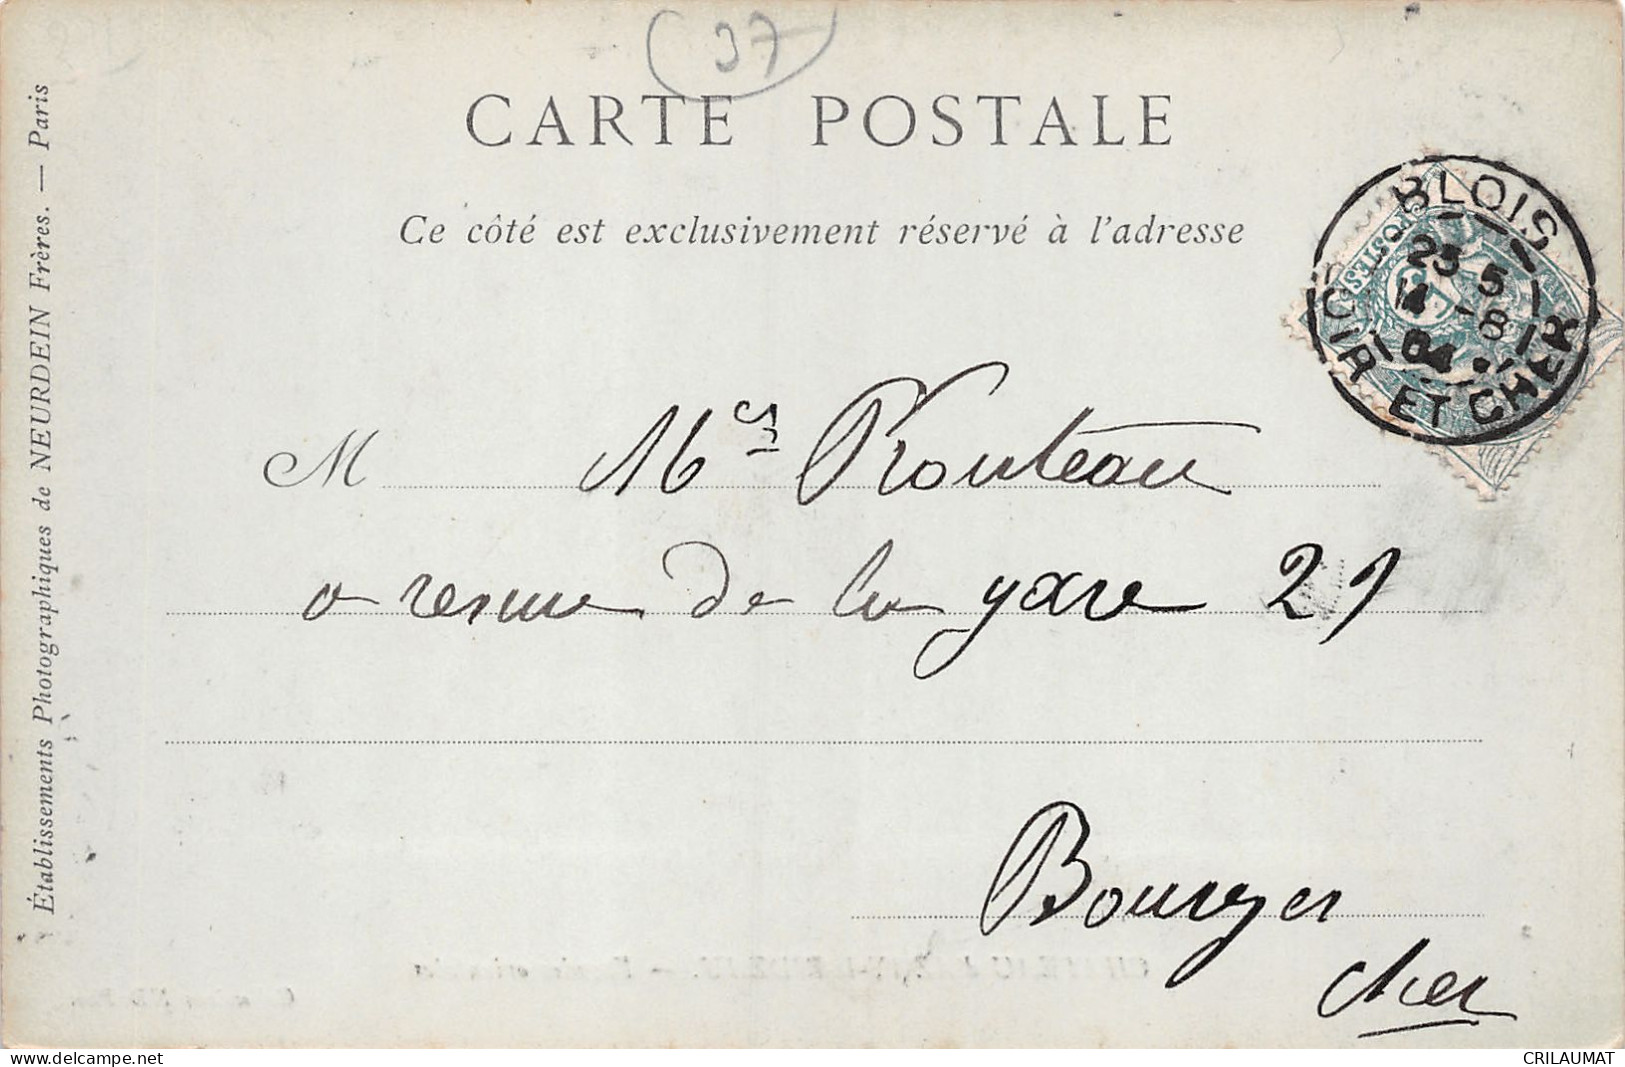 37
CARTE POSTALE
Ce côté est exclusivement réservé à l'adresse
BLOIS
23 5
14 -8
04
LOIR ET CHER
POSTES
M
avenue de la gare 29
Bourges
Cher
Établissements Photographiques de NEURDEIN Frères. — Paris
CRILAUMAT